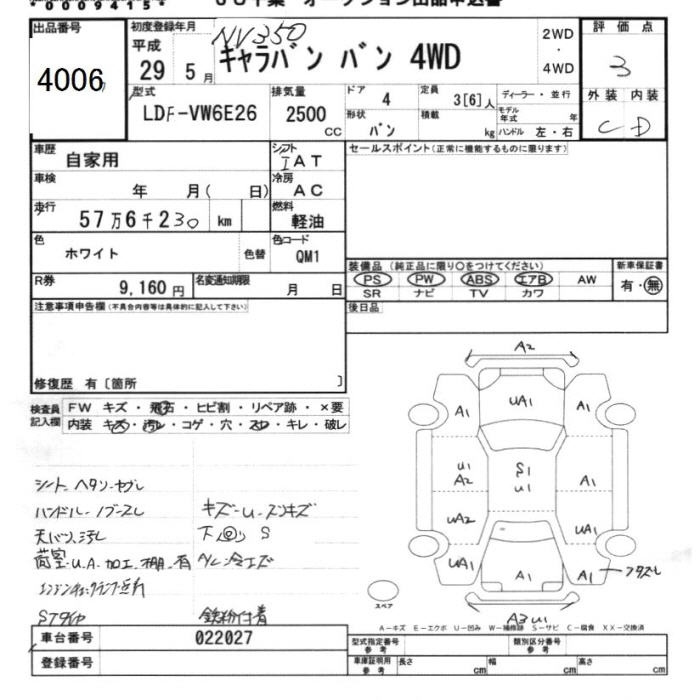 *0009415*
出品番号
4006
初度登録年月
平成
29 5月
NV350
キャラバン バン 4WD
2WD
・
4WD
評価点
3
外装 内装
C D
型式
LDF-VW6E26
排気量
2500
CC
ドア
4
形状
バン
定員
3[6]人
積載
kg
ディーラー・並行
モデル年式 年
ハンドル 左・右
車歴
自家用
シフト
I AT
セールスポイント(正常に機能するものに限ります)
車検
年 月( 日)
冷房
AC
走行
57万6千230 km
燃料
軽油
色
ホワイト
色替
色コード
QM1
R券
9,160円
名変通知期限
月 日
装備品(純正品に限り○をつけてください)
PS PW ABS エアB AW
SR ナビ TV カワ
新車保証書
有・無
注意事項申告欄(不具合内容等は具体的に記入して下さい)
後日品
修復歴 有〔箇所 〕
検査員記入欄
FW キズ・飛石・ヒビ割・リペア跡・×要
内装 キズ・汚レ・コゲ・穴・スレ・キレ・破レ
A2
A1
UA1
A1
U1
A2
S1
U1
A1
UA2
UA1
UA1
A1
A1
スペア
A3 U1
シート ヘタリ
ハンドル
天バリ汚レ
荷室 U.A.加工.棚.有
キズ-U-スリキズ
下回 S
STタイヤ
鉄粉付着
A-キズ E-エクボ U-凹み W-補修跡 S-サビ C-腐食 XX-交換済
車台番号
022027
登録番号
型式指定番号
参考
類別区分番号
参考
車庫証明用
参考
長さ cm
幅 cm
高さ cm